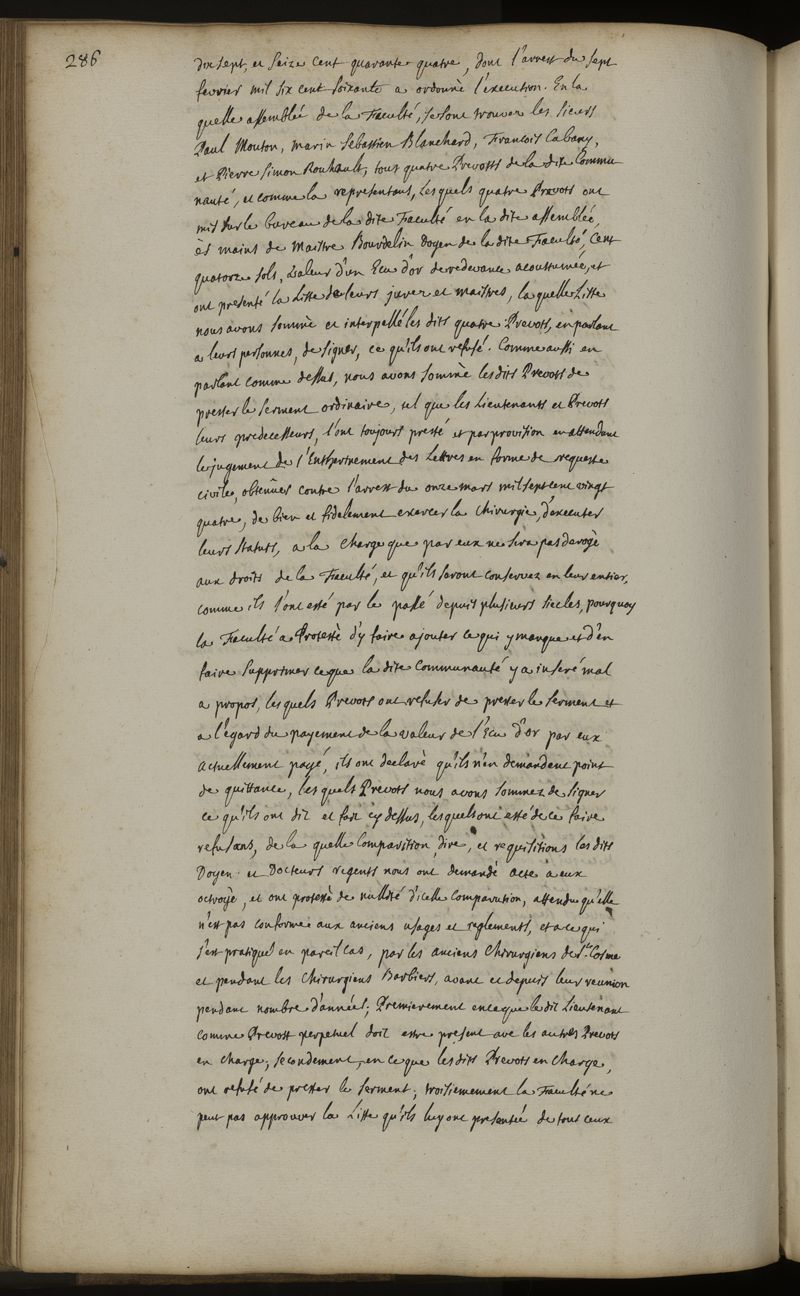 286
dix sept, et seize cent quarante quatre, dont l'arrest du sept
fevrier mil six cent soixante a ordonné l'execution. En la
quelle assemblée de la Faculté, se sont trouvez les sieurs
Paul Mouton, Marin Sebastien Blanchard, Francois Cabany,
et Pierre Simon Rouhault, tous quatre Prevosts de la dite Commu
nauté, et comme la representans, Lesquels quatre Prevots ont
mis sur le bureau de la dite Faculté en la dite assemblée,
ès mains de Maistre Bourdelin Doyen de la dite Faculté, Cent
quatorze sols, valeur d'un Ecu d'or de redevance acoustumée, et
ont presenté la Liste de leurs jurez et maistres, la quelle Liste
nous avons sommé et interpellé les dits quatre Prevots, en parlant
a leurs personnes, de signer, ce qu'ils ont refusé. Comme aussi en
parlant comme dessus, nous avons sommé les dits Prevots de
prester le serment ordinaire, tel que les Lieutenants et Prevots
leurs predecesseurs, l'ont toujours presté et par provision en attendant
le jugement de l'Enthérinement des Lettres en forme de requeste
civile, obtenües contre l'arrest du onze mars mil sept cent vingt
quatre, de bien et fidelement exercer la Chirurgie, d'executer
leurs Statuts, a la charge que par eux ne sera pas derogé
aux droits de la Faculté, et qu'ils seront conservez en leur entier,
comme ils l'ont esté par le passé depuis plusieurs siecles, pourquoy
la Faculté a Protesté d'y faire ajouter ce qui y manque et d'en
faire supprimer ce que la dite Communauté y a inseré mal
a propos, lesquels Prevots ont refusez de prester le serment et
a l'égard du payement de la valeur de l'Ecu d'or par eux
actuellement payé, ils ont declaré qu'ils n'en demandent point
de quittance, lesquels Prevots nous avons sommez de signer
ce qu'ils ont dit et fait cy dessus, lesquels ont esté de ce faire
refusans, de la quelle Comparition, dire, et requisitions les dits
Doyen et Docteurs regents nous ont demandé acte a eux
octroyé, et ont protesté de nullité d'icelle Comparution, attendu qu'elle
n'est pas conforme aux anciens usages et reglements, et a ce qui
s'est pratiqué en pareil cas, par les anciens Chirurgiens de St. Cosme
et pendant les Chirurgiens Barbiers, avant et depuis leur reunion
pendant nombre d'années; Premierement en ce que le dit Lieutenant
comme Prevost perpetuel doit estre present avec les autres Prevots
en charge, secondement, en ce que les dits Prevots en charge,
ont refusé de prester le serment; troisiemement la Faculté ne
peut pas approuver la Liste qu'ils luy ont presentée de tous ceux